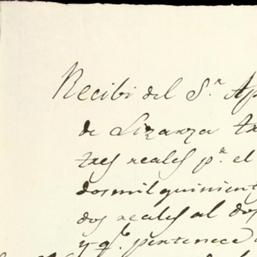 Recibi del S.r Ap
de Lizarza tr
tres reales p.r el
dos mil quinient
dos reales al dos
y q.e pertenece